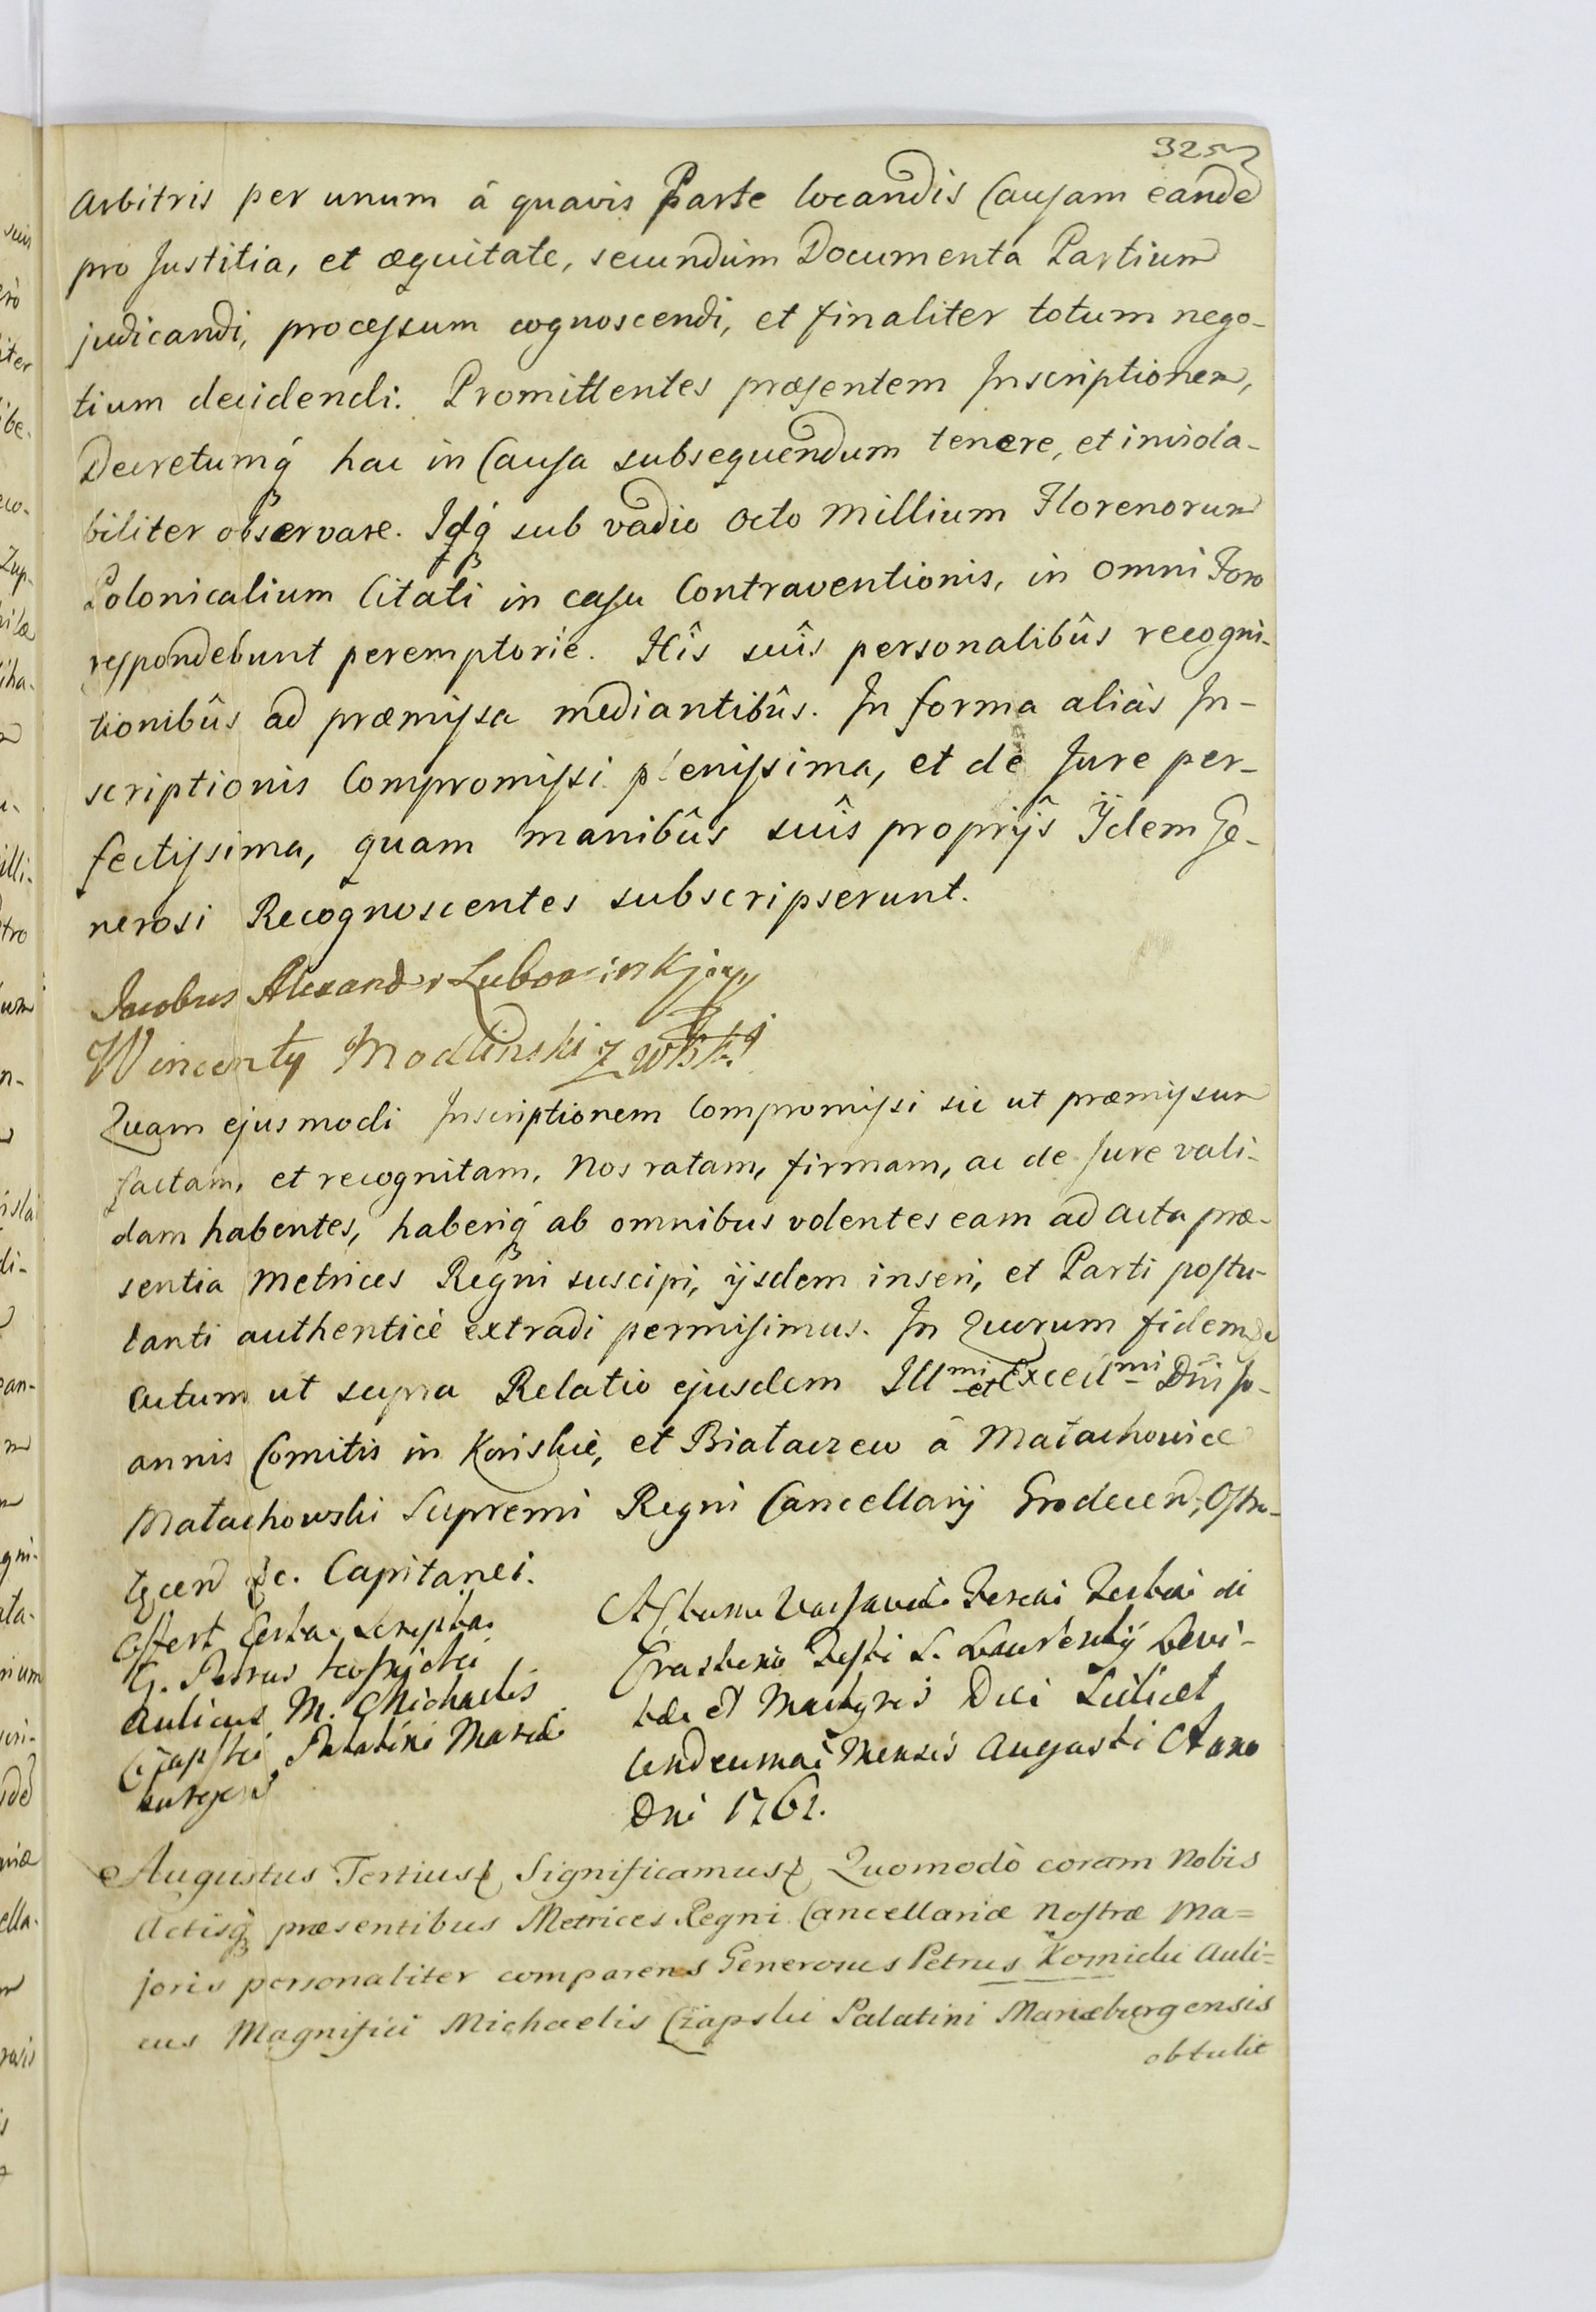 325
Arbitris per unum á quavis Parte locandis Causam eande
pro Justitia, et æquitate, secundùm Documenta Partium
judicandi, processum cognoscendi, et finaliter totum nego-
tium decidendi. Promittentes præsentem Inscriptionem,
Decretumq́ hac in Causa subsequendum tenere, et inviola-
biliter observare. Idq́ sub vadio Octo Millium Florenorum
Polonicalium Citati in casu Contraventionis, in omni Foro
respondebunt peremptoriè. Hîs suîs personalibûs recogni-
tionibûs ad præmissa mediantibûs. In forma aliàs In-
scriptionis Compromissi plenissima, et de Jure per-
fectissima, quam manibûs suîs proprijs Ijdem Ge-
nerosi Recognoscentes subscripserunt.
Jacobus Alexander
Wincenty Modlinski
Quam ejusmodi Inscriptionem Compromissi sic ut præmissum
factam, et recognitam, Nos ratam, firmam, ac de Jure vali-
dam habentes, haberiq́ ab omnibus volentes eam ad Acta præ-
sentia Metrices Regni suscipi, ijsdem inseri, et Parti postu-
lanti authenticè extradi permisimus. In Quorum fidem &
Actum ut supra Relatio ejusdem Illmi et Excellmi Dñi Jo-
annis Comitis in Konskie, et Białaczew á Małachowice
Małachowski Supremi Regni Cancellarij Grodecen, Ostro-
łęcen &c. Capitanei.
Offert
G. Petrus
Aulicus M. Michaelis
Czapski Palatini Mariæ
burgen
Actum Varsaviæ Feria Tertia
Crastino Festi S. Laurentij Levi-
tæ et Martyris Die Scilicet
Undecima Mensis Augusti Anno
Dni 1761.
Augustus Tertius & Significamus & Quomodò coram Nobis
Actisq́ præsentibus Metrices Regni Cancellariæ Nostræ Ma=
joris personaliter comparens Generosus Petrus Auli=
cus Magnifici Michaelis Czápski Palatini Mariæburgensis
obtulit